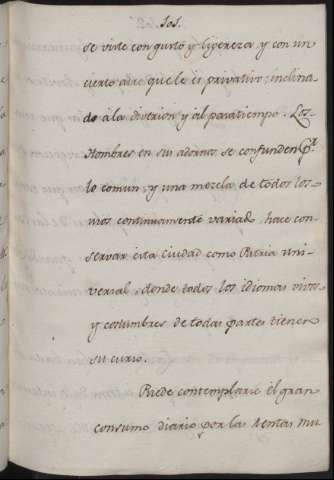 101.
se viste con gusto y ligereza y con un
cierto aire que le es privativo: inclina-
do à la diversion y al pasatiempo. Los
Hombres en sus adornos se confunden pr.
lo comun, y una mezcla de todos los
usos continuamente variad hace con-
servar esta ciudad como Patria uni-
versal, donde todos los idiomas vivos
y costumbres de todas partes tienen
su curso.
Puede contemplarse el gran
consumo diario por las Rentas mu